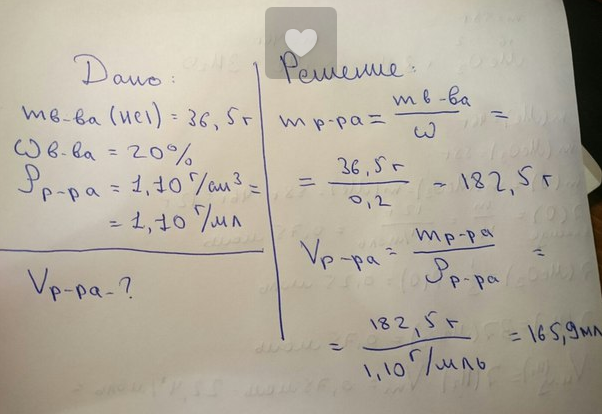 Дано:
mв-ва (HCl) = 36,5г
ωв-ва = 20%
ρр-ра = 1,10 г/см³ =
= 1,10 г/мл
Vр-ра - ?
Решение:
mр-ра = mв-ва / ω =
= 36,5г / 0,2 = 182,5г
Vр-ра = mр-ра / ρр-ра =
= 182,5г / 1,10 г/мль = 165,9мл